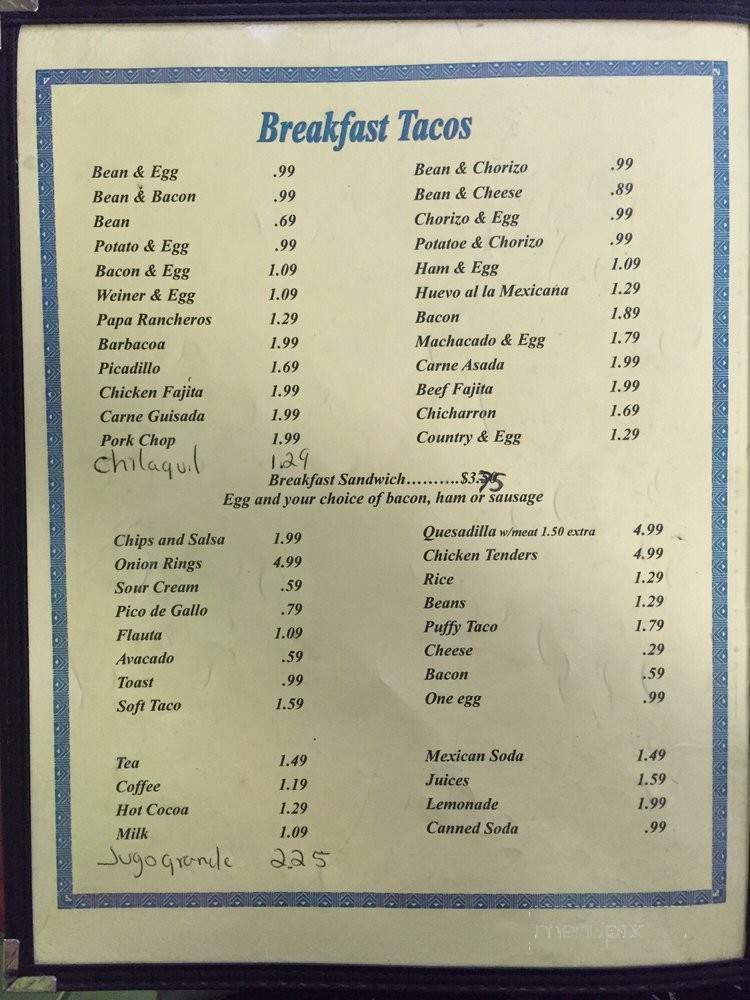 Breakfast Tacos
Bean & Egg .99 Bean & Chorizo .99
Bean & Bacon .99 Bean & Cheese .89
Bean .69 Chorizo & Egg .99
Potato & Egg .99 Potatoe & Chorizo .99
Bacon & Egg 1.09 Ham & Egg 1.09
Weiner & Egg 1.09 Huevo al la Mexicana 1.29
Papa Rancheros 1.29 Bacon 1.89
Barbacoa 1.99 Machacado & Egg 1.79
Picadillo 1.69 Carne Asada 1.99
Chicken Fajita 1.99 Beef Fajita 1.99
Carne Guisada 1.99 Chicharron 1.69
Pork Chop 1.99 Country & Egg 1.29
Chilaquil 1.29
Breakfast Sandwich..........$3.75
Egg and your choice of bacon, ham or sausage
Chips and Salsa 1.99 Quesadilla w/meat 1.50 extra 4.99
Onion Rings 4.99 Chicken Tenders 4.99
Sour Cream .59 Rice 1.29
Pico de Gallo .79 Beans 1.29
Flauta 1.09 Puffy Taco 1.79
Avacado .59 Cheese .29
Toast .99 Bacon .59
Soft Taco 1.59 One egg .99
Tea 1.49 Mexican Soda 1.49
Coffee 1.19 Juices 1.59
Hot Cocoa 1.29 Lemonade 1.99
Milk 1.09 Canned Soda .99
Jugo grande 2.25
menupix